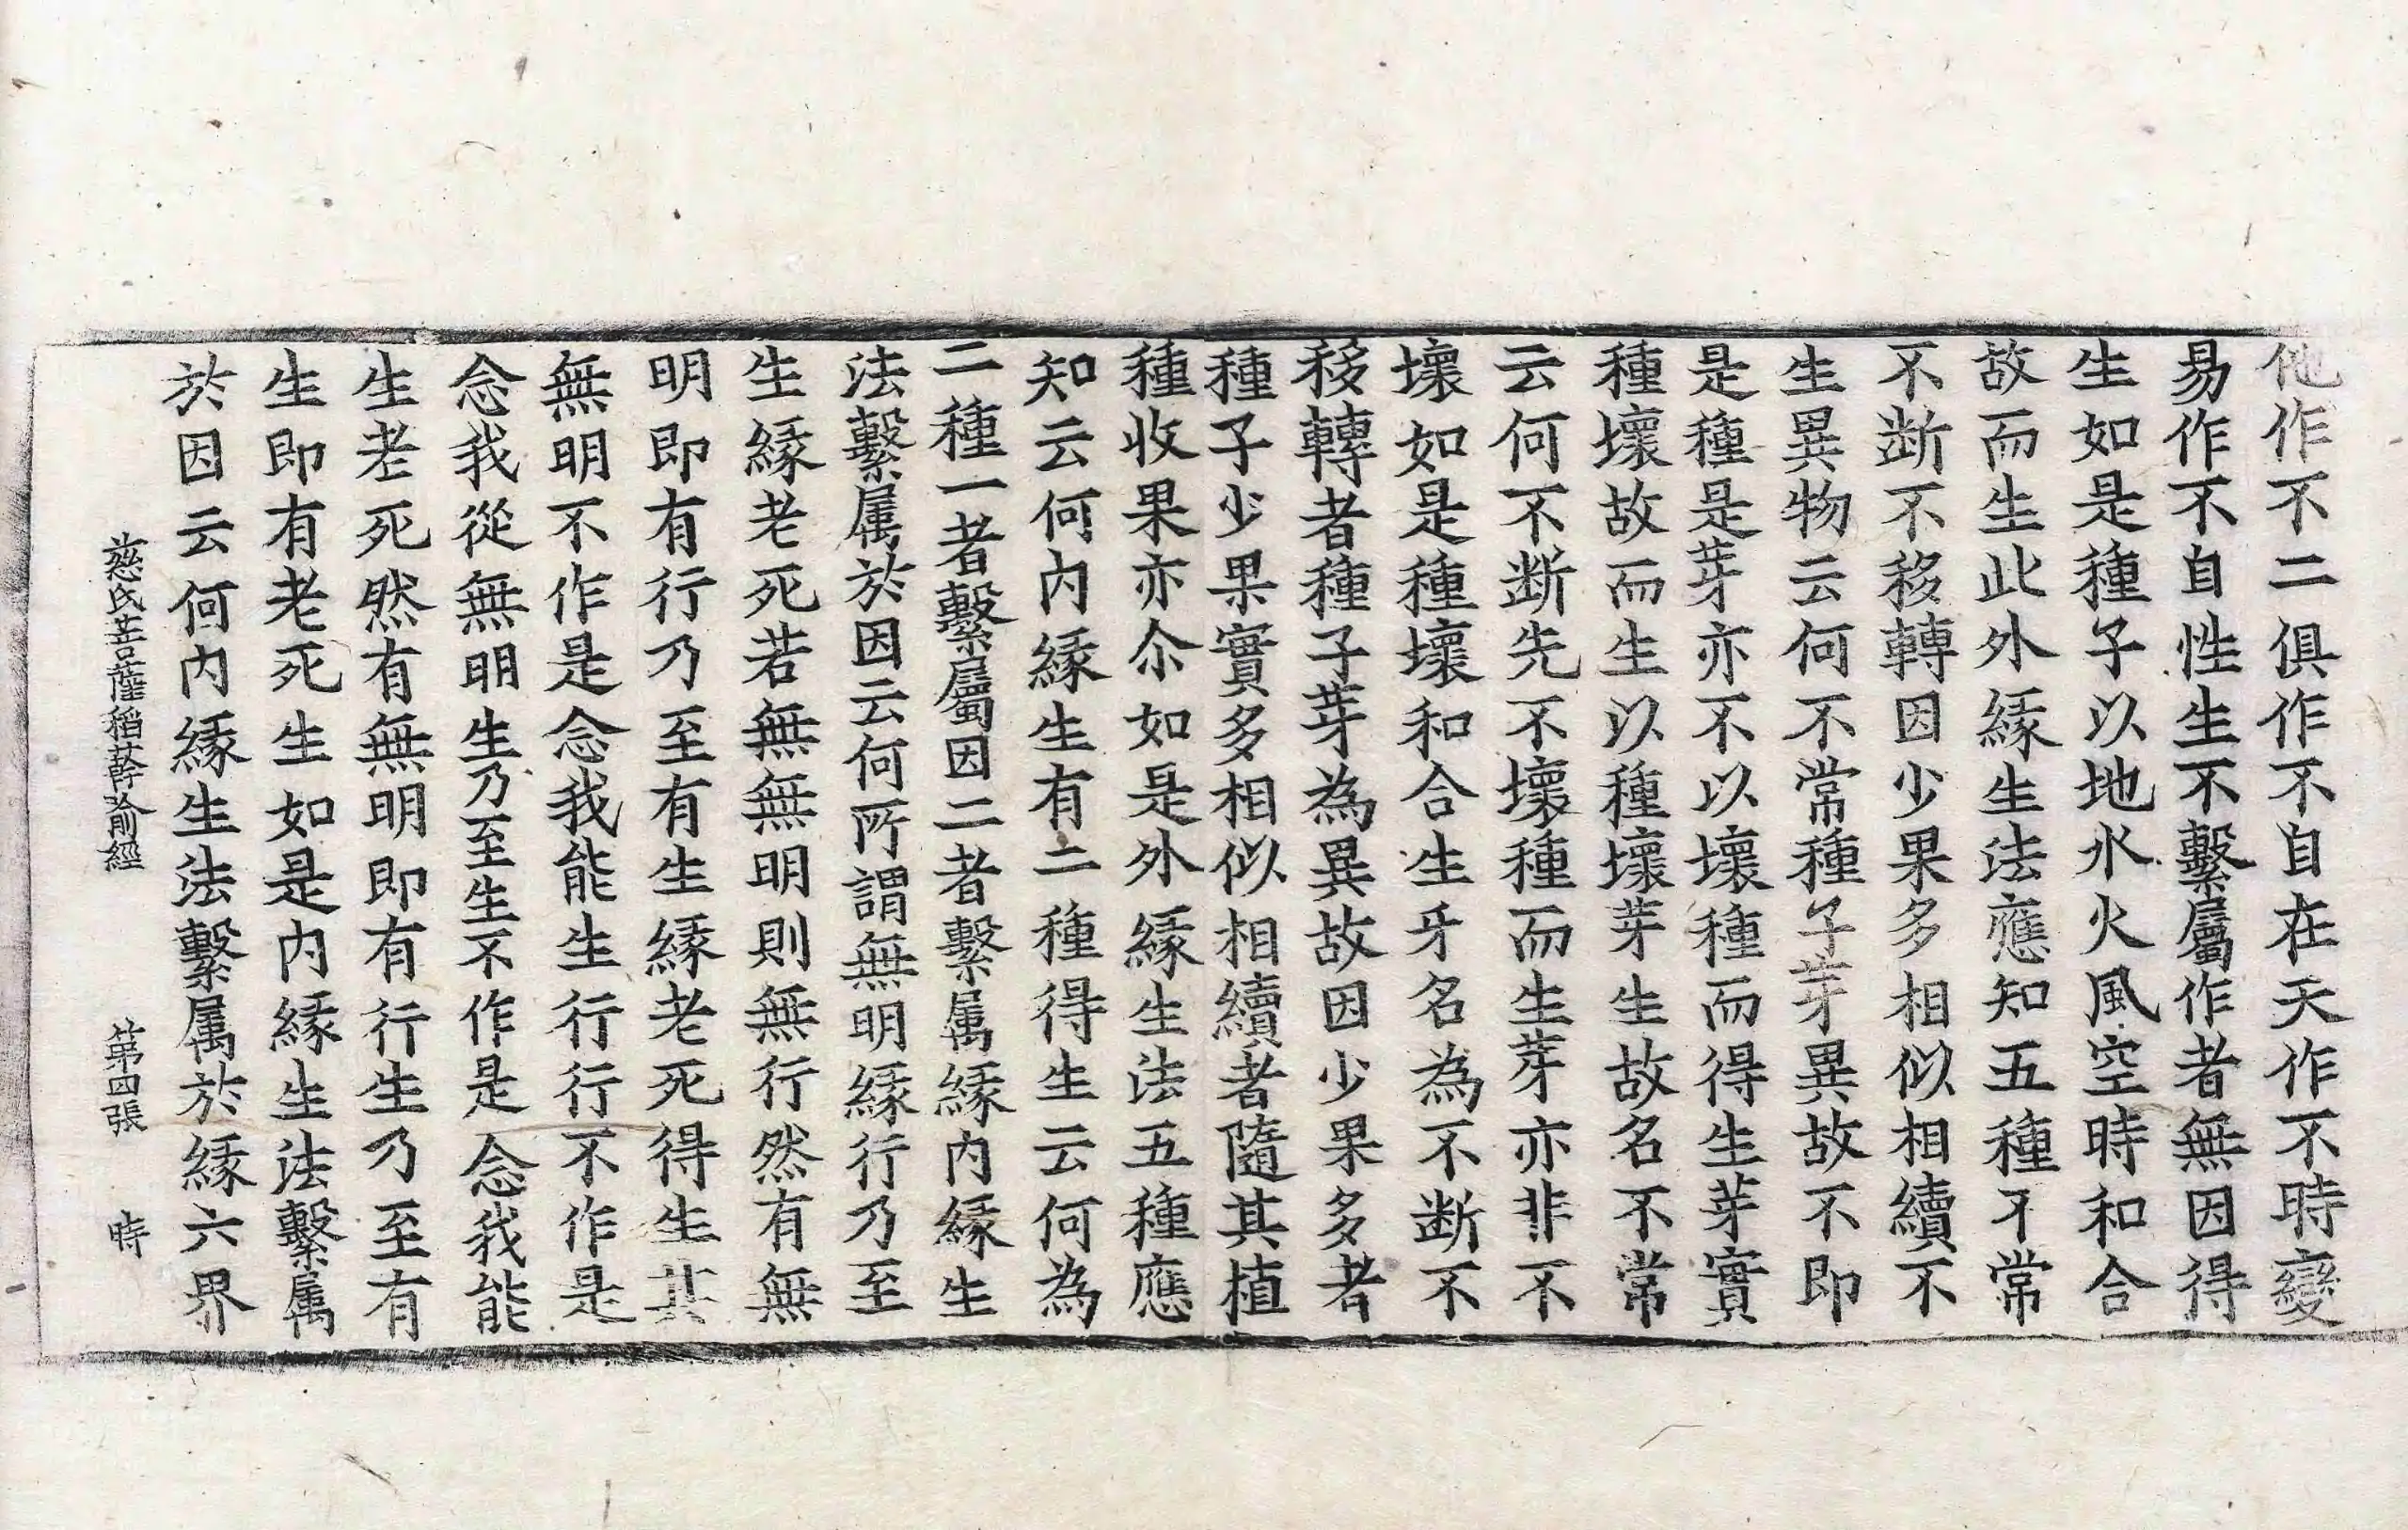 他作不二俱作不自在天作不時變
易作不自性生不繫屬作者無因得
生如是種子以地水火風空時和合
故而生此外緣生法應知五種不常
不断不移轉因少果多相似相續不
生異物云何不常種子芽異故不即
是種是芽亦不以壞種而得生芽實
種壞故而生以種壞芽生故名不常
云何不断先不壞種而生芽亦非不
壞如是種壞和合生牙名為不断不
移轉者種子芽為異故因少果多者
種子少果實多相似相續者隨其植
種收果亦尒如是外緣生法五種應
知云何内緣生有二種得生云何為
二種一者繫屬因二者繫属緣内緣生
法繫属於因云何所謂無明緣行乃至
生緣老死若無無明則無行然有無
明即有行乃至有生緣老死得生其
無明不作是念我能生行行不作是
念我從無明生乃至生不作是念我能
生老死然有無明即有行生乃至有
生即有老死生如是内緣生法繫属
於因云何内緣生法繫属於緣六界
慈氏菩薩稻芉喻經　第四張　時